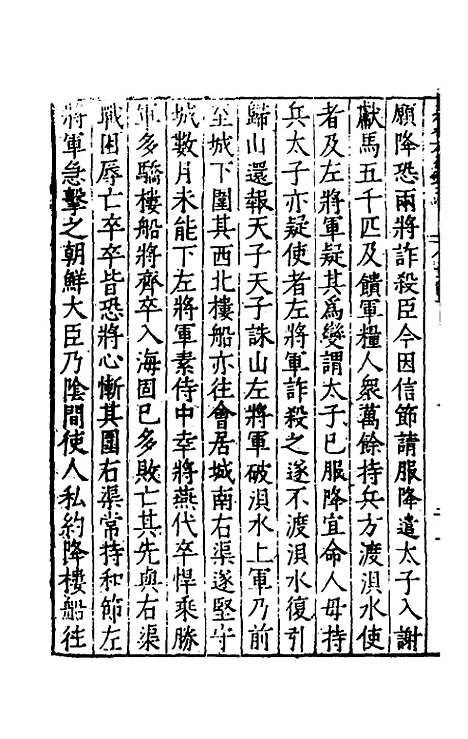 願降恐兩將詐殺臣今因信節請服降遣太子入謝
獻馬五千匹及饋軍糧人衆萬餘持兵方渡浿水使
者及左將軍疑其爲變謂太子已服降宜命人毋持
兵太子亦疑使者左將軍詐殺之遂不渡浿水復引
歸山還報天子天子誅山左將軍破浿水上軍乃前
至城下圍其西北樓船亦往會居城南右渠遂堅守
城數月未能下左將軍素侍中幸將燕代卒悍乘勝
軍多驕樓船將齊卒入海固已多敗亡其先與右渠
戰困辱亡卒卒皆恐將心慚其圍右渠常持和節左
將軍急擊之朝鮮大臣乃陰間使人私約降樓船往